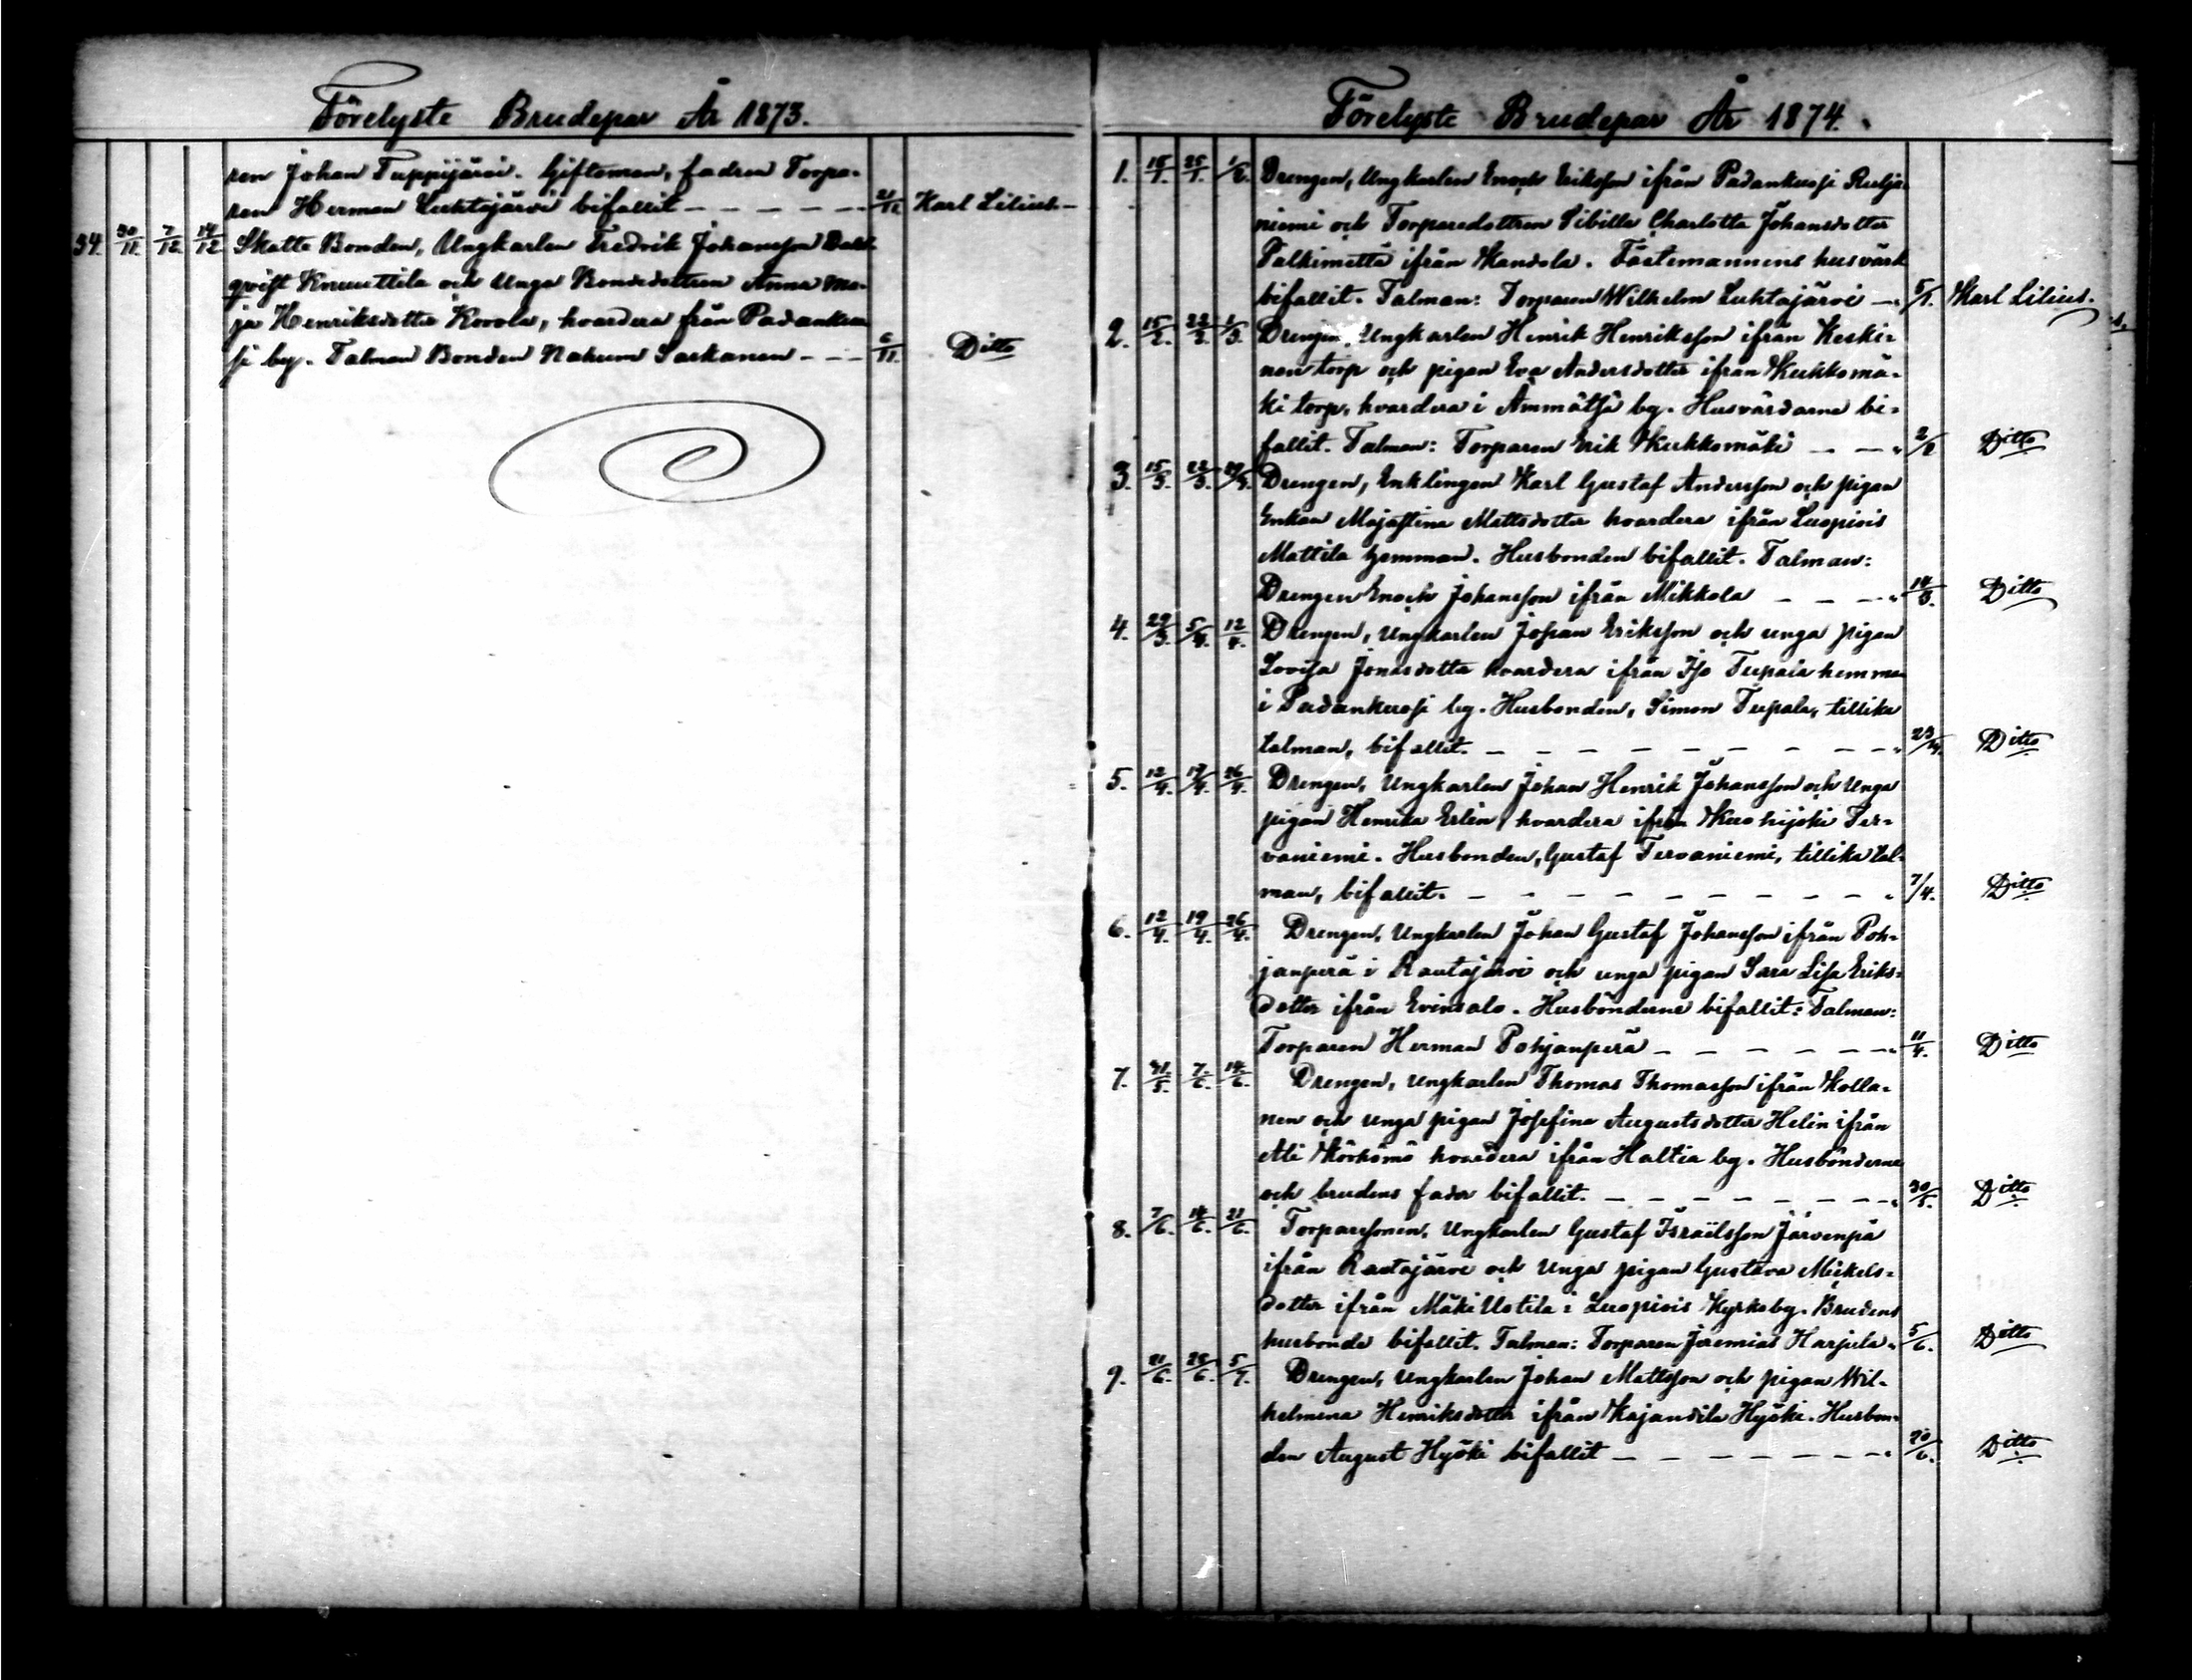 Förelyste Brudepar År 1873.
ren Johan Tuppijärvi. Giftoman, fadren Torpa-
ren Herman Luhtajärvi bifallit — — — — — 21/11 Karl Lilius.—
34. 30/11. 7/12 14/12 Skatte Bonden, Ungkarlen Fredrik Johansson Dahl
qvist Knuuttila och Unga Bondedottren Anna Ma-
ja Henriksdotter Kovola, hvardera från Padankos
si by. Talman Bonden Nahum Sarkanen — — — 6/11. Ditto
Förelyste Brudepar År 1874.
1. 18/1. 25/1. 1/2. Drengen, Ungkarlen Enoch Eriksson ifrån Padankossi
niemi och Torparedottren Sibilla Charlotta Johansdotter
Palkimetta ifrån Kandola. Fästemannens husvärd
bifallit. Talman: Torparen Wilhelm Luhtajärvi — 5/1. Karl Lilius.
2. 15/2. 22/2. 1/3. Drengen, Ungkarlen Henrik Henriksson ifrån Keski-
nen torp och pigan Eva Andersdotter ifrån Kukkomä-
ki torp, hvardera i Ämmätsä by. Husvärdarne bi-
fallit. Talman: Torparen Erik Kukkomäki — — 2/2 Ditto
3. 15/3. 22/3. 29/3. Drengen, Enklingen Karl Gustaf Andersson och pigan
Enkan Majastina Mattsdotter hvardera ifrån Luopiois
Mattila hemman. Husbonden bifallit. Talman:
Drengen Enoch Johansson ifrån Mikkola — — — 14/3. Ditto
4. 29/3. 5/4. 12/4. Drengen, Ungkarlen Johan Eriksson och unga pigan
Lovisa Jonasdotter hvardera ifrån Iso Teepala hemman
i Padankossi by. Husbonden, Simon Teepala, tillika
talman, bifallit. — — — — — — — — — Ditto
5. 12/4. 19/4. 26/4. Drengen, Ungkarlen Johan Henrik Johansson och Unga
pigan Henrika Erlin, hvardera ifrån Kuohijoki Ter-
vaniemi. Husbonden, Gustaf Tervaniemi, tillika tal-
man, bifallit. — — — — — — — — — 7/4. Ditto
6. 12/4. 19/4. 26/4. Drengen, Ungkarlen Johan Gustaf Johansson ifrån Poh-
janperä i Rautajärvi och unga pigan Sara Lisa Eriks-
dotter ifrån Evinsalo. Husbönderne bifallit: Talman:
Torparen Herman Pohjanperä — — — — — — 11/4. Ditto
7. 31/5. 7/6. 14/6. Drengen, Ungkarlen Thomas Thomasson ifrån Kolla-
nen och unga pigan Josefina Augustsdotter Helin ifrån
Ali Körkömö hvardera ifrån Haltia by. Husbönderne
och brudens fader bifallit. — — — — — — — 30/5. Ditto
8. 7/6. 14/6. 21/6. Torparesonen, Ungkarlen Gustaf Israëlsson Järvenpä
ifrån Rautajärvi och Unga pigan Gustava Mickels-
dotter ifrån Mäki Uotila i Luopiois Kyrkoby. Brudens
husbonde bifallit. Talman: Torparen Jeremias Harjula. 5/6. Ditto
9. 21/6. 28/6. 5/7. Drengen, Ungkarlen Johan Mattsson och pigan Wil-
helmina Henriksdotter ifrån Kajandila Hyöki. Husbon-
den August Hyöki bifallit — — — — — — — 20/6. Ditto